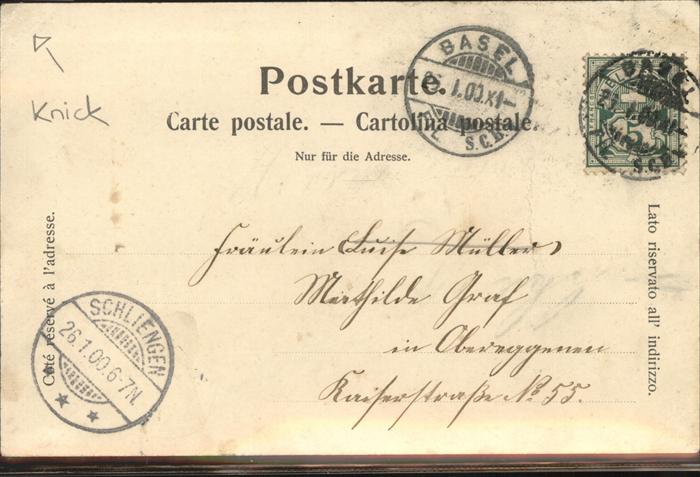 Knick
Postkarte.
Carte postale. — Cartolina postale.
Nur für die Adresse.
Côté réservé à l'adresse.
Lato riservato all' indirizzo.
BASEL
26. 1.00.XI—
S.C.D.
BASEL
5
Fräulein Luise Müller
Mathilde Graf
in Obereggenen
Kaiserstraße No 55.
SCHLIENGEN
26.1.00.6-7N.